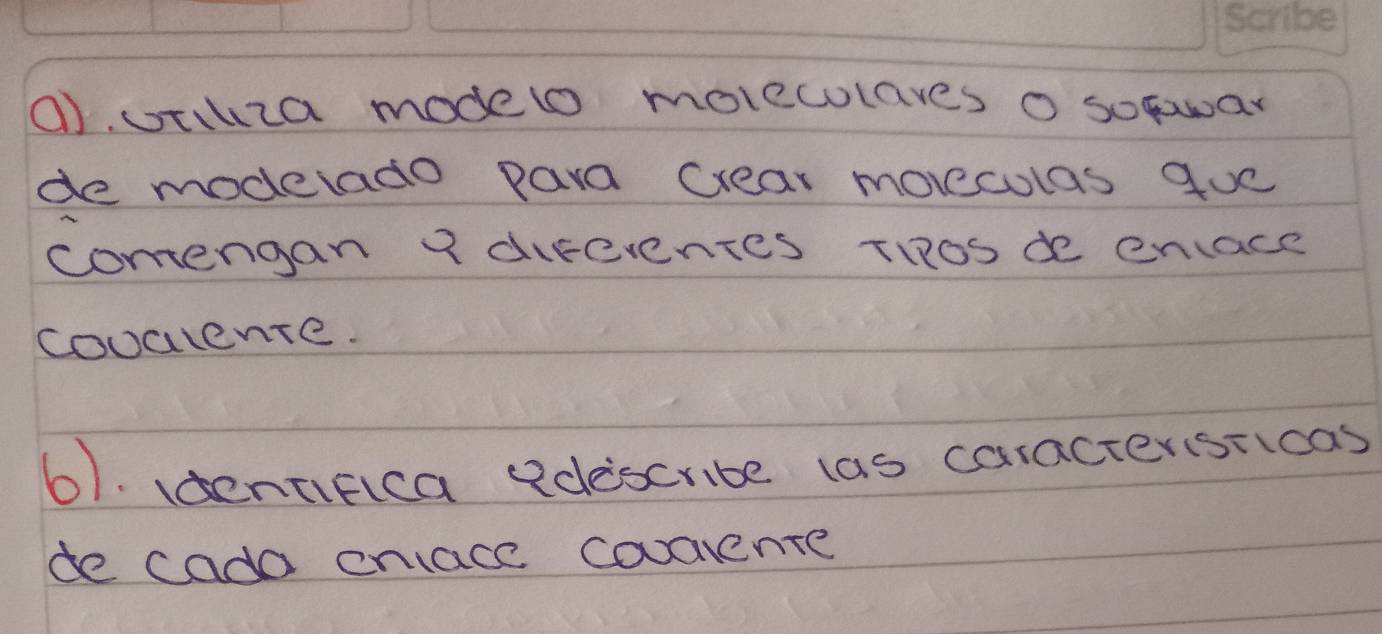 Scribe
a). utiliza modelo moleculares o sofwar
de modelado para crear moleculas que
comengan y diferentes tipos de enlace
covalente.
b). identifica y describe las caracteristicas
de cada enlace covalente